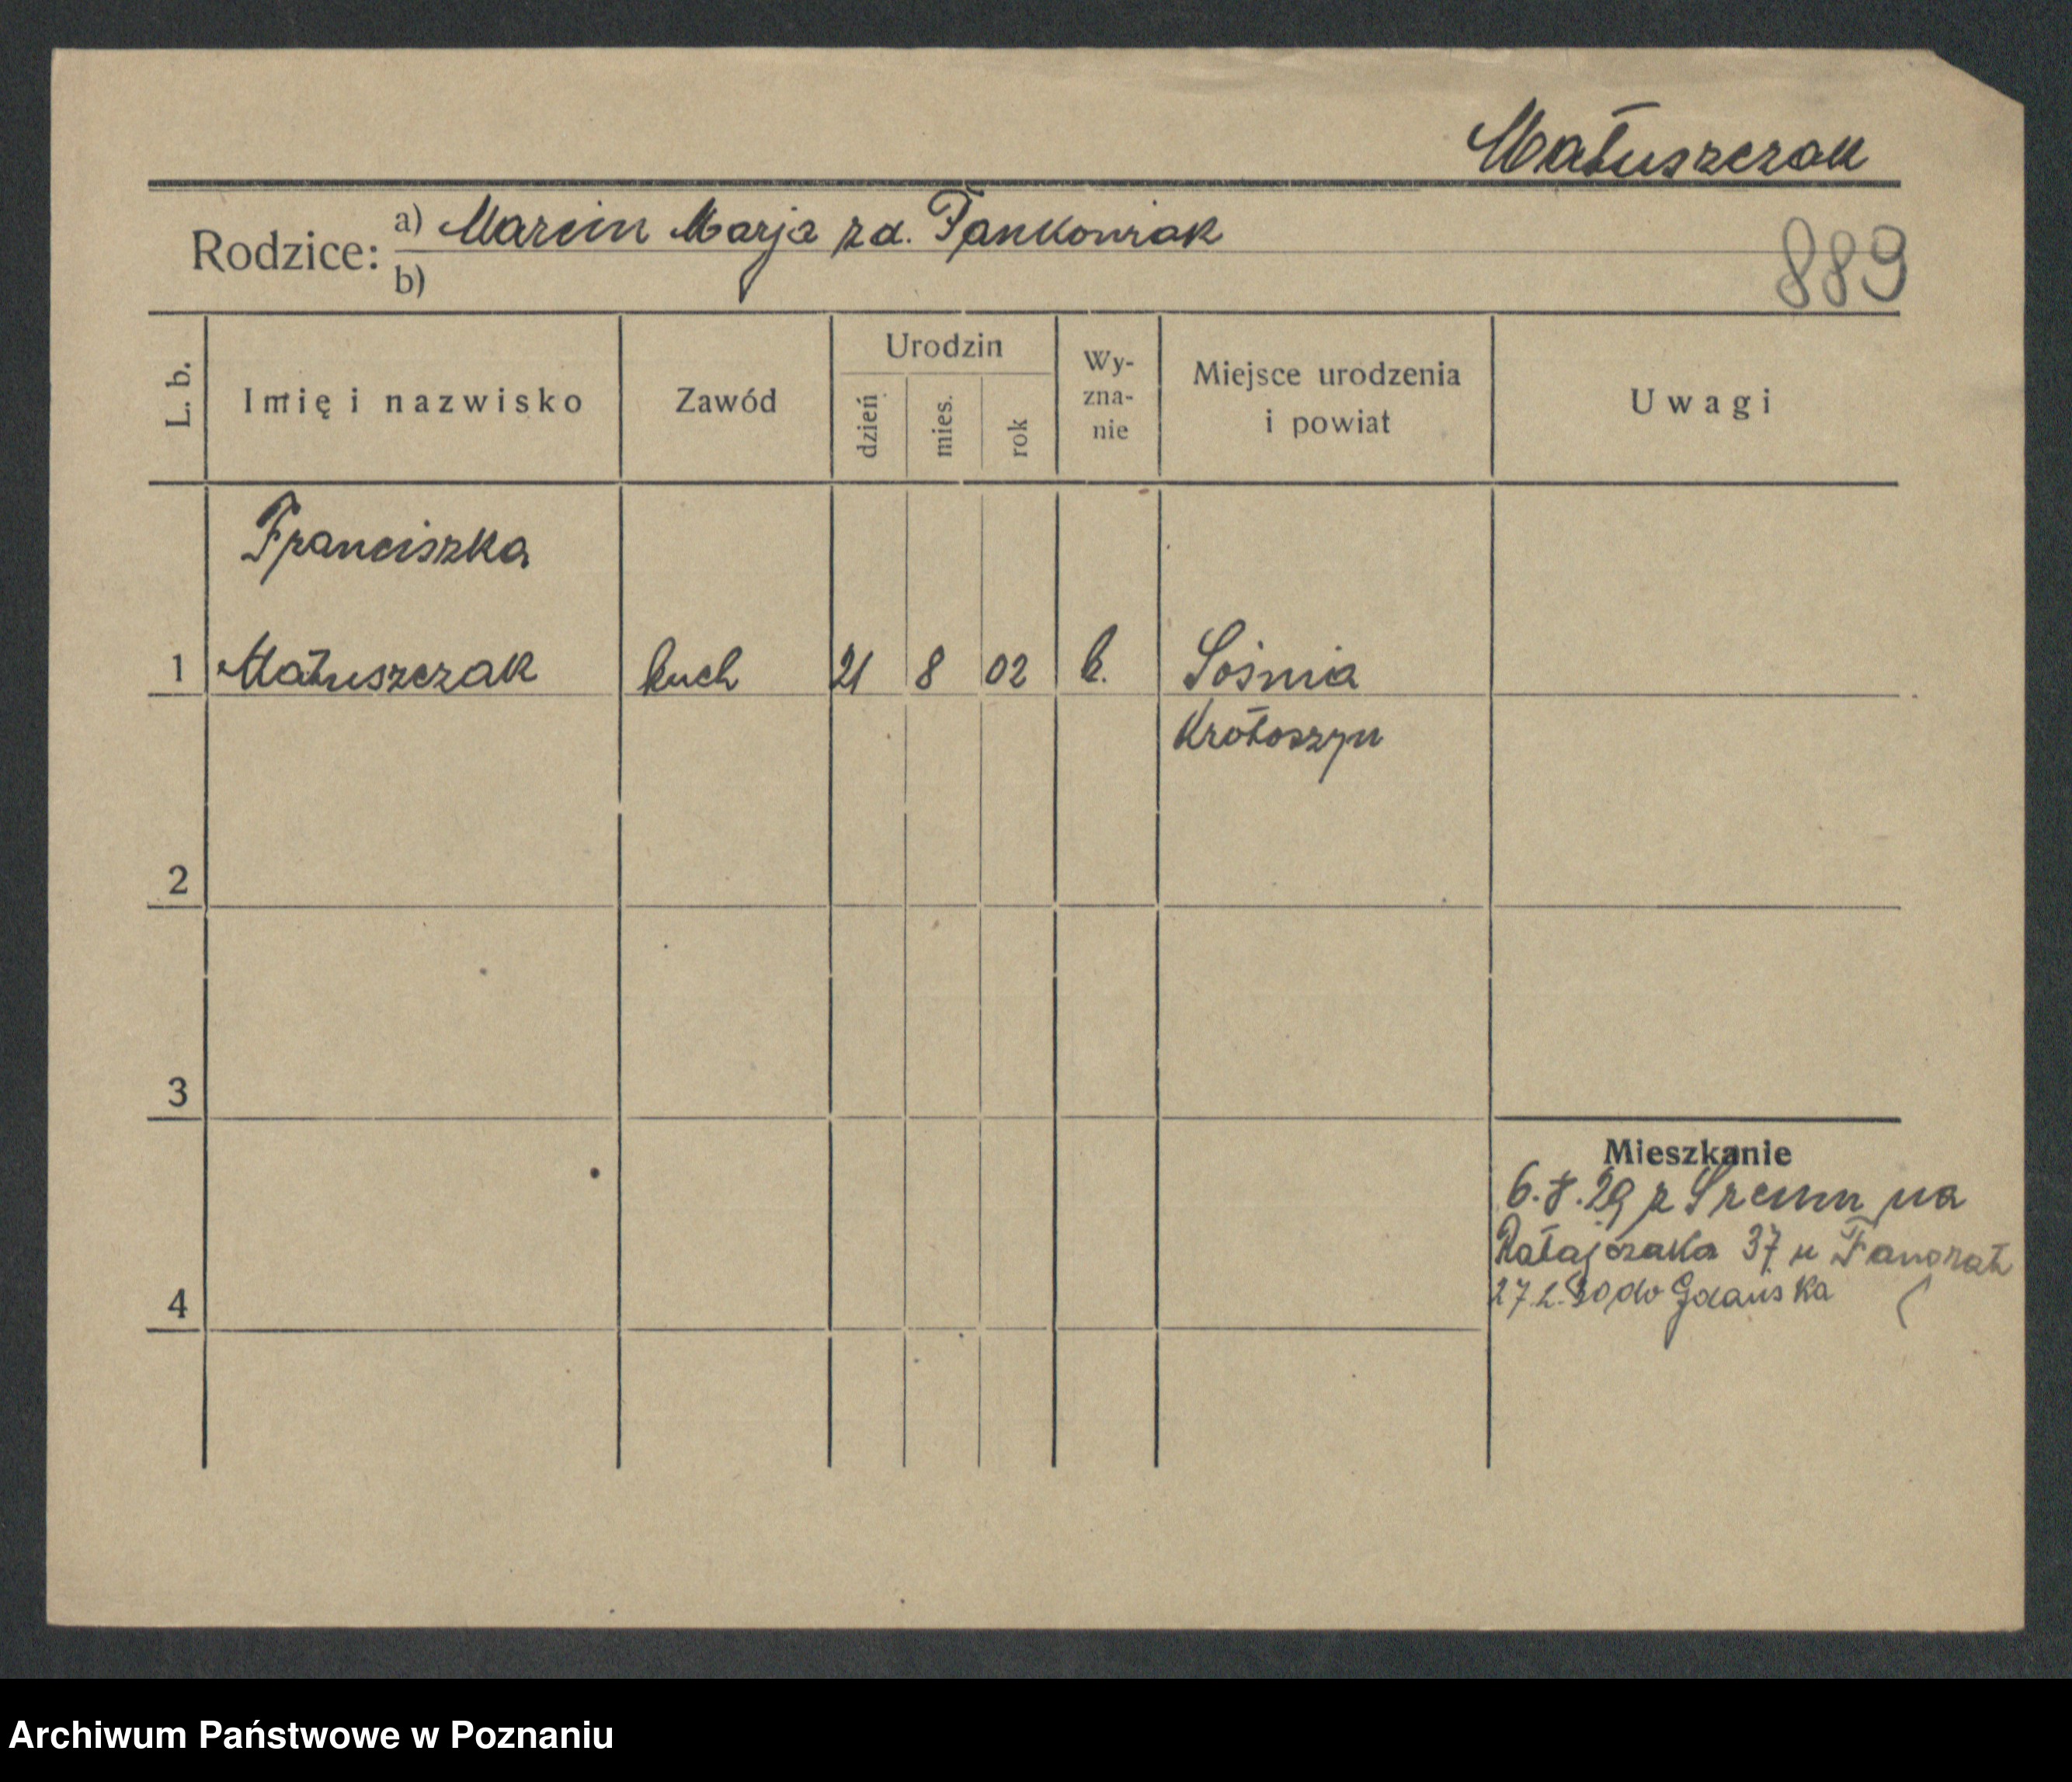 Matuszczak
Rodzice: a) Marcin Marja zd. Jankowiak
b)
889
L. b.
Imię i nazwisko
Zawód
Urodzin
dzień
mies.
rok
Wy-
zna-
nie
Miejsce urodzenia
i powiat
Uwagi
Franciszka
1 Matuszczak kuch 21 8 02 k. Sośnia
Krotoszyn
2
3
Mieszkanie
6.8.29 z Śremu na
Ratajczaka 37 u
4
27.2.30 do Gdańska
Archiwum Państwowe w Poznaniu